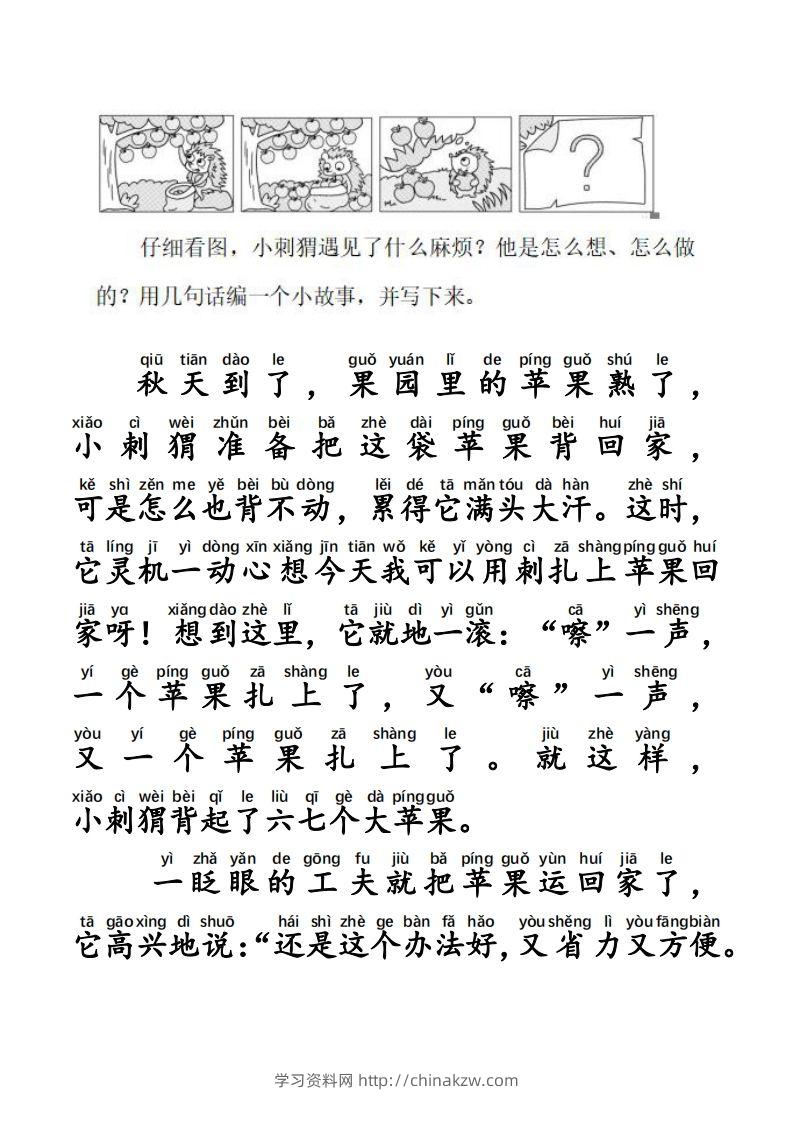 ?
仔细看图，小刺猬遇见了什么麻烦？他是怎么想、怎么做
的？用几句话编一个小故事，并写下来。
qiū tiān dào le guǒ yuán lǐ de píng guǒ shú le
秋天到了，果园里的苹果熟了，
xiǎo cì wèi zhǔn bèi bǎ zhè dài píng guǒ bèi huí jiā
小刺猬准备把这袋苹果背回家，
kě shì zěn me yě bèi bù dòng lěi dé tā mǎn tóu dà hàn zhè shí
可是怎么也背不动，累得它满头大汗。这时，
tā líng jī yì dòng xīn xiǎng jīn tiān wǒ kě yǐ yòng cì zā shàng píng guǒ huí
它灵机一动心想今天我可以用刺扎上苹果回
jiā ya xiǎng dào zhè lǐ tā jiù dì yì gǔn cā yì shēng
家呀！想到这里，它就地一滚：“嚓”一声，
yí gè píng guǒ zā shàng le yòu cā yì shēng
一个苹果扎上了，又“嚓”一声，
yòu yí gè píng guǒ zā shàng le jiù zhè yàng
又一个苹果扎上了。就这样，
xiǎo cì wèi bèi qǐ le liù qī gè dà píng guǒ
小刺猬背起了六七个大苹果。
yì zhǎ yǎn de gōng fu jiù bǎ píng guǒ yùn huí jiā le
一眨眼的工夫就把苹果运回家了，
tā gāo xìng dì shuō hái shì zhè ge bàn fǎ hǎo yòu shěng lì yòu fāng biàn
它高兴地说：“还是这个办法好，又省力又方便。
学习资料网 http://chinakzw.com